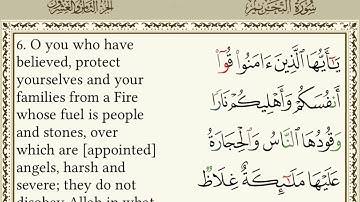 سُورَةُ التَّحْرِيمِ
الجُزْءُ الثَّامِنُ وَالعِشْرُونَ
6. O you who have
believed, protect
yourselves and your
families from a Fire
whose fuel is people
and stones, over
which are [appointed]
angels, harsh and
severe; they do not
disobey Allah in what
يَٰٓأَيُّهَا ٱلَّذِينَ ءَامَنُوا۟ قُوٓا۟
أَنفُسَكُمْ وَأَهْلِيكُمْ نَارًا
وَقُودُهَا ٱلنَّاسُ وَٱلْحِجَارَةُ
عَلَيْهَا مَلَٰٓئِكَةٌ غِلَاظٌ